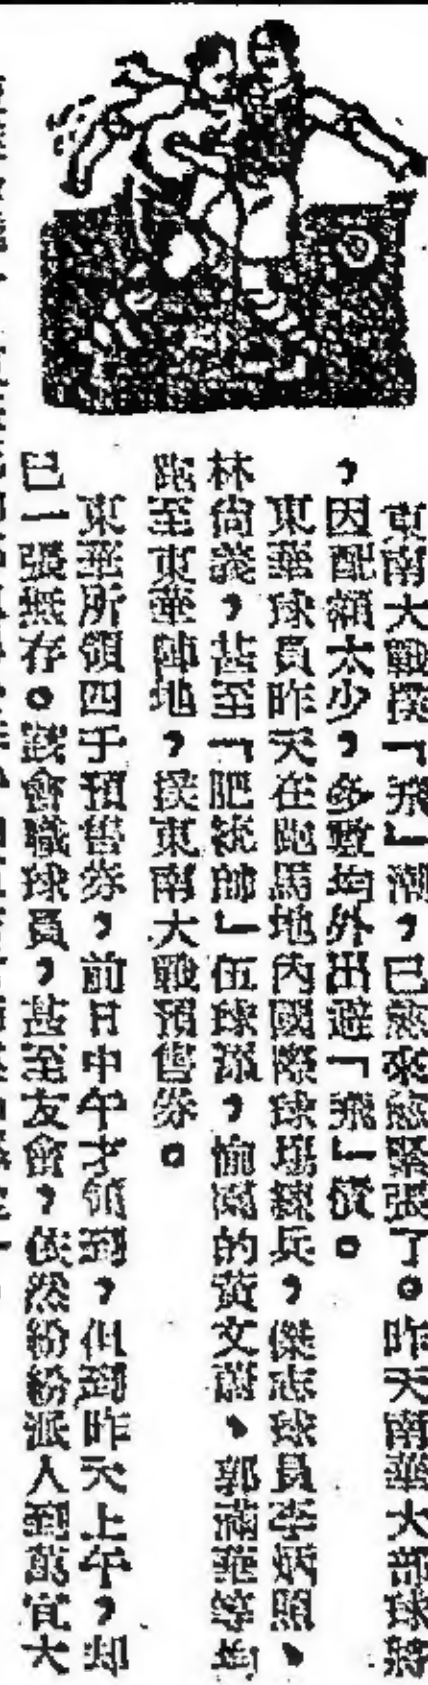 東南大戰撲「飛」潮,已愈來愈緊張了。昨天南華大部球將
,因配額太少,多數均外出避「飛」債。
東華球員昨天在跑馬地內國際球場練兵,傑志球員李炳照、
林尚義,甚至「肥統帥」伍球派,愉園的黃文謝、郭滿華等均
跑至東華陣地,撲東南大戰預售券。
東華所領四千預售券,前日中午才領到,但到昨天上午,却
已一張無存。該會職球員,甚至友會,依然紛紛派人到萬宜大